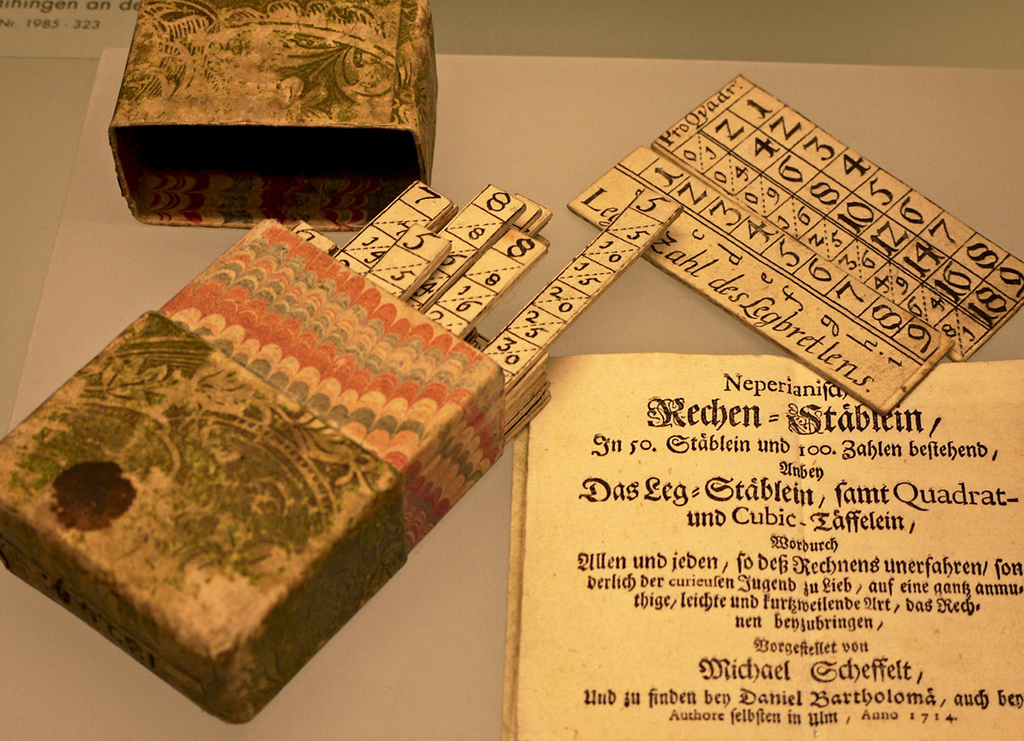 Nr. 1985 - 323
7
8
5
8
5
Pro Qvadr:
1 2 3 4 5 6 7 8 9
2 4 6 8 10 12 14 16 18
1 2 3 4 5 6 7 8 9
Zahl des Legbretlens.
Neperianisch
Rechen-Stäblein,
In 50. Stäblein und 100. Zahlen bestehend,
Anbey
Das Leg-Stäblein, samt Quadrat-
und Cubic-Täffelein,
Wordurch
Allen und jeden, so deß Rechnens unerfahren/ son
derlich der curieusen Jugend zu Lieb, auf eine gantz anmu-
thige, leichte und kurtzweilende Art, das Rech-
nen beyzubringen,
Vorgestellet von
Michael Scheffelt,
Und zu finden bey Daniel Bartholomä, auch bey
Authore selbsten in Ulm, Anno 1714.